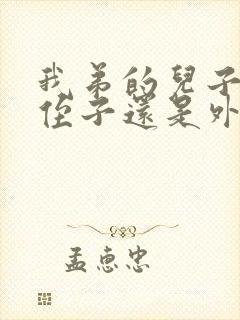 我弟的兒子
侄子還是外
孟惠忠